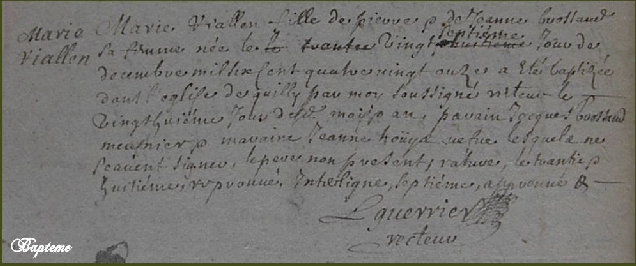 Marie Viallon
Marie Viallon fille de pierre & de Jeanne brossaud
sa femme née le trante vingt huitieme septième Jour de
decembre mil six sent quatre vingt onze a Eté baptizée
dans l'eglise de quilly par moy soussigné recteur le
vingthuiéme Jour desd. mois & an, parain Jacques brossaud
meusnier & maraine Jeanne houya lesquels ne
scavent signer, le pere non present, rature, le trante &
huitiéme, reprouué Interligne, septiéme, approuué &
Lguerrier
recteur
Bapteme